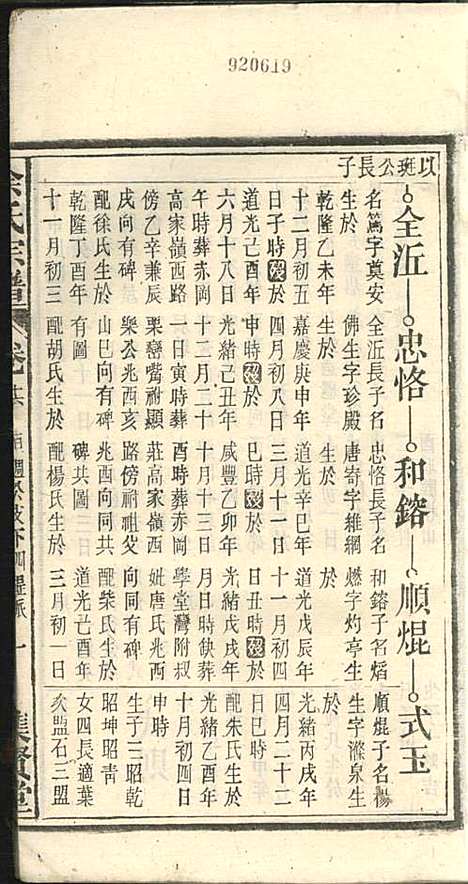 920619
以珽公長子
全㳂 忠恪 和鎔 順焜 式玉
名篤字奠安
生於
乾隆乙未年
十二月初五
日子時歿於
道光己酉年
六月十八日
午時葬赤岡
高家嶺西路
傍乙辛兼辰
戌向有碑
配徐氏生於
乾隆丁酉年
十一月初三
全㳂長子名
佛生字珍殿
生於
嘉慶庚申年
四月初八日
申時歿於
光緒己丑年
十二月三十
日寅時葬
栗巒嘴祔顯
樂公兆酉亥
山巳向有碑
有圖
配胡氏生於
忠恪長子名
唐寄字維綱
生於
道光辛巳年
三月十一日
巳時歿於
咸豐乙卯年
十月十三日
酉時葬赤岡
莊高家嶺西
路傍祔祖父
兆西向同共
碑共圖
配楊氏生於
和鎔子名熖
燃字灼亭生
於
道光戊辰年
十一月初四
日丑時歿於
光緒戊戌年
日時缺葬
學堂灣附叔
妣唐氏兆西
向同有碑
配柴氏生於
道光己酉年
三月初一日
順焜子名楊
生字滌泉生
於
光緒丙戌年
四月二十二
日巳時
配朱氏生於
光緒乙酉年
十月初四日
申時
生子三昭乾
昭坤昭青
女四長適葉
次盟石三盟
余氏宗譜 卷
一
集賢堂